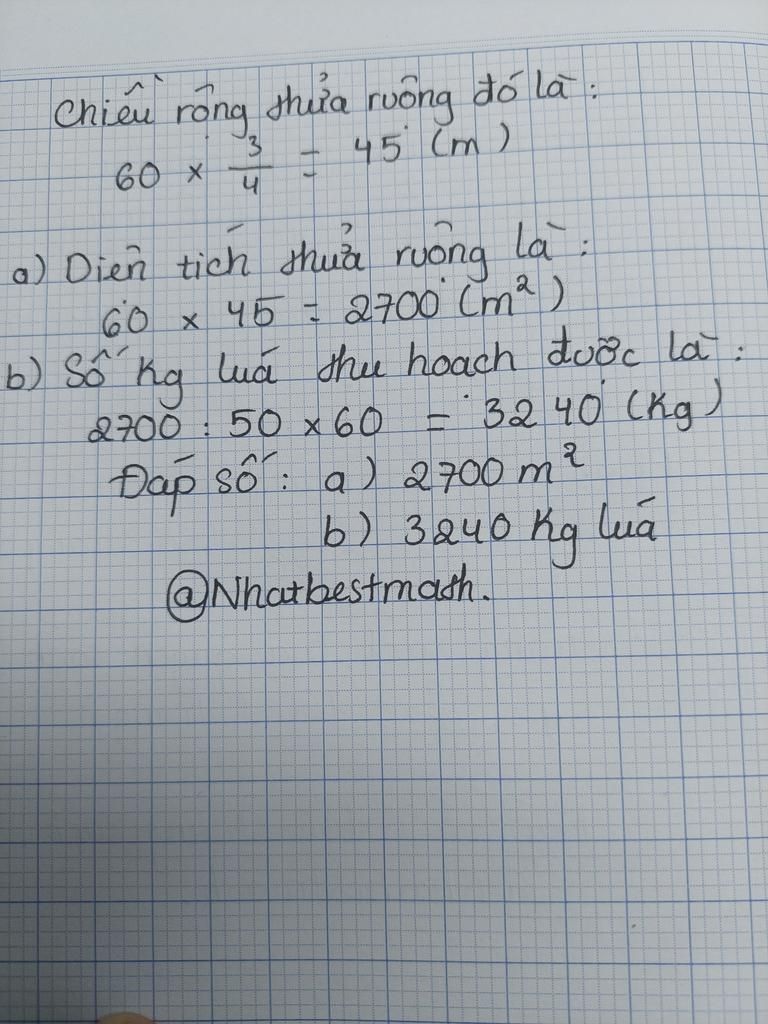 Chiều rộng thửa ruộng đó là:
60 × 3/4 = 45 (m)
a) Diện tích thửa ruộng là:
60 × 45 = 2700 (m²)
b) Số Kg luá thu hoach được là:
2700 : 50 × 60 = 3240 (Kg)
Đáp số: a) 2700 m²
b) 3240 Kg luá
@Nhatbestmath.